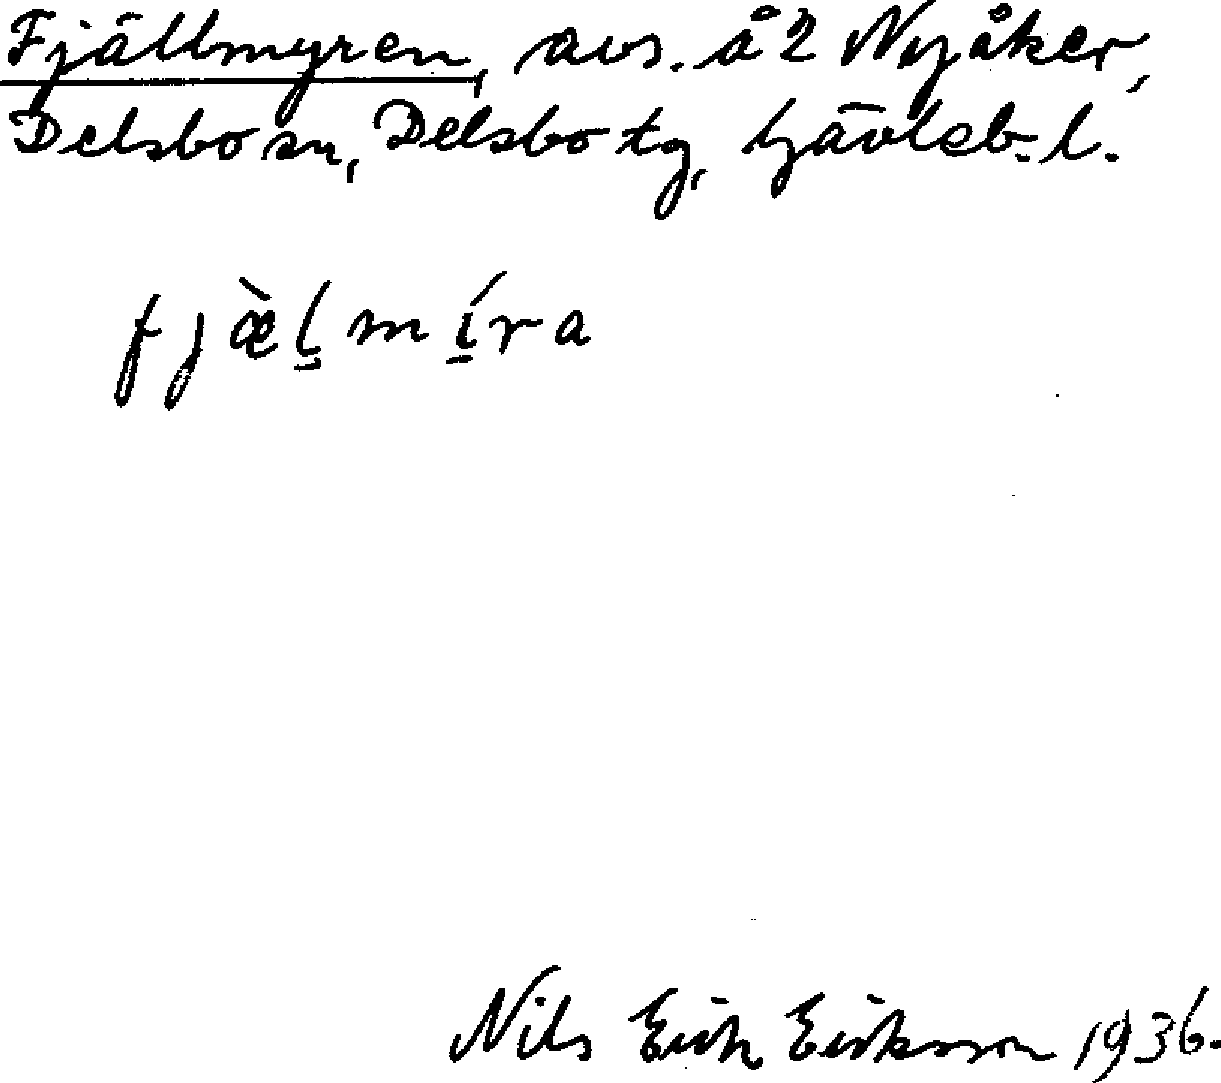 Fjällmyren, avs. å 2 Nyåker,
Delsbo sn, Delsbo tg, Gävleb. l.
fjæ̀l̠mí̠ra
Nils Erik Eriksson 1936.